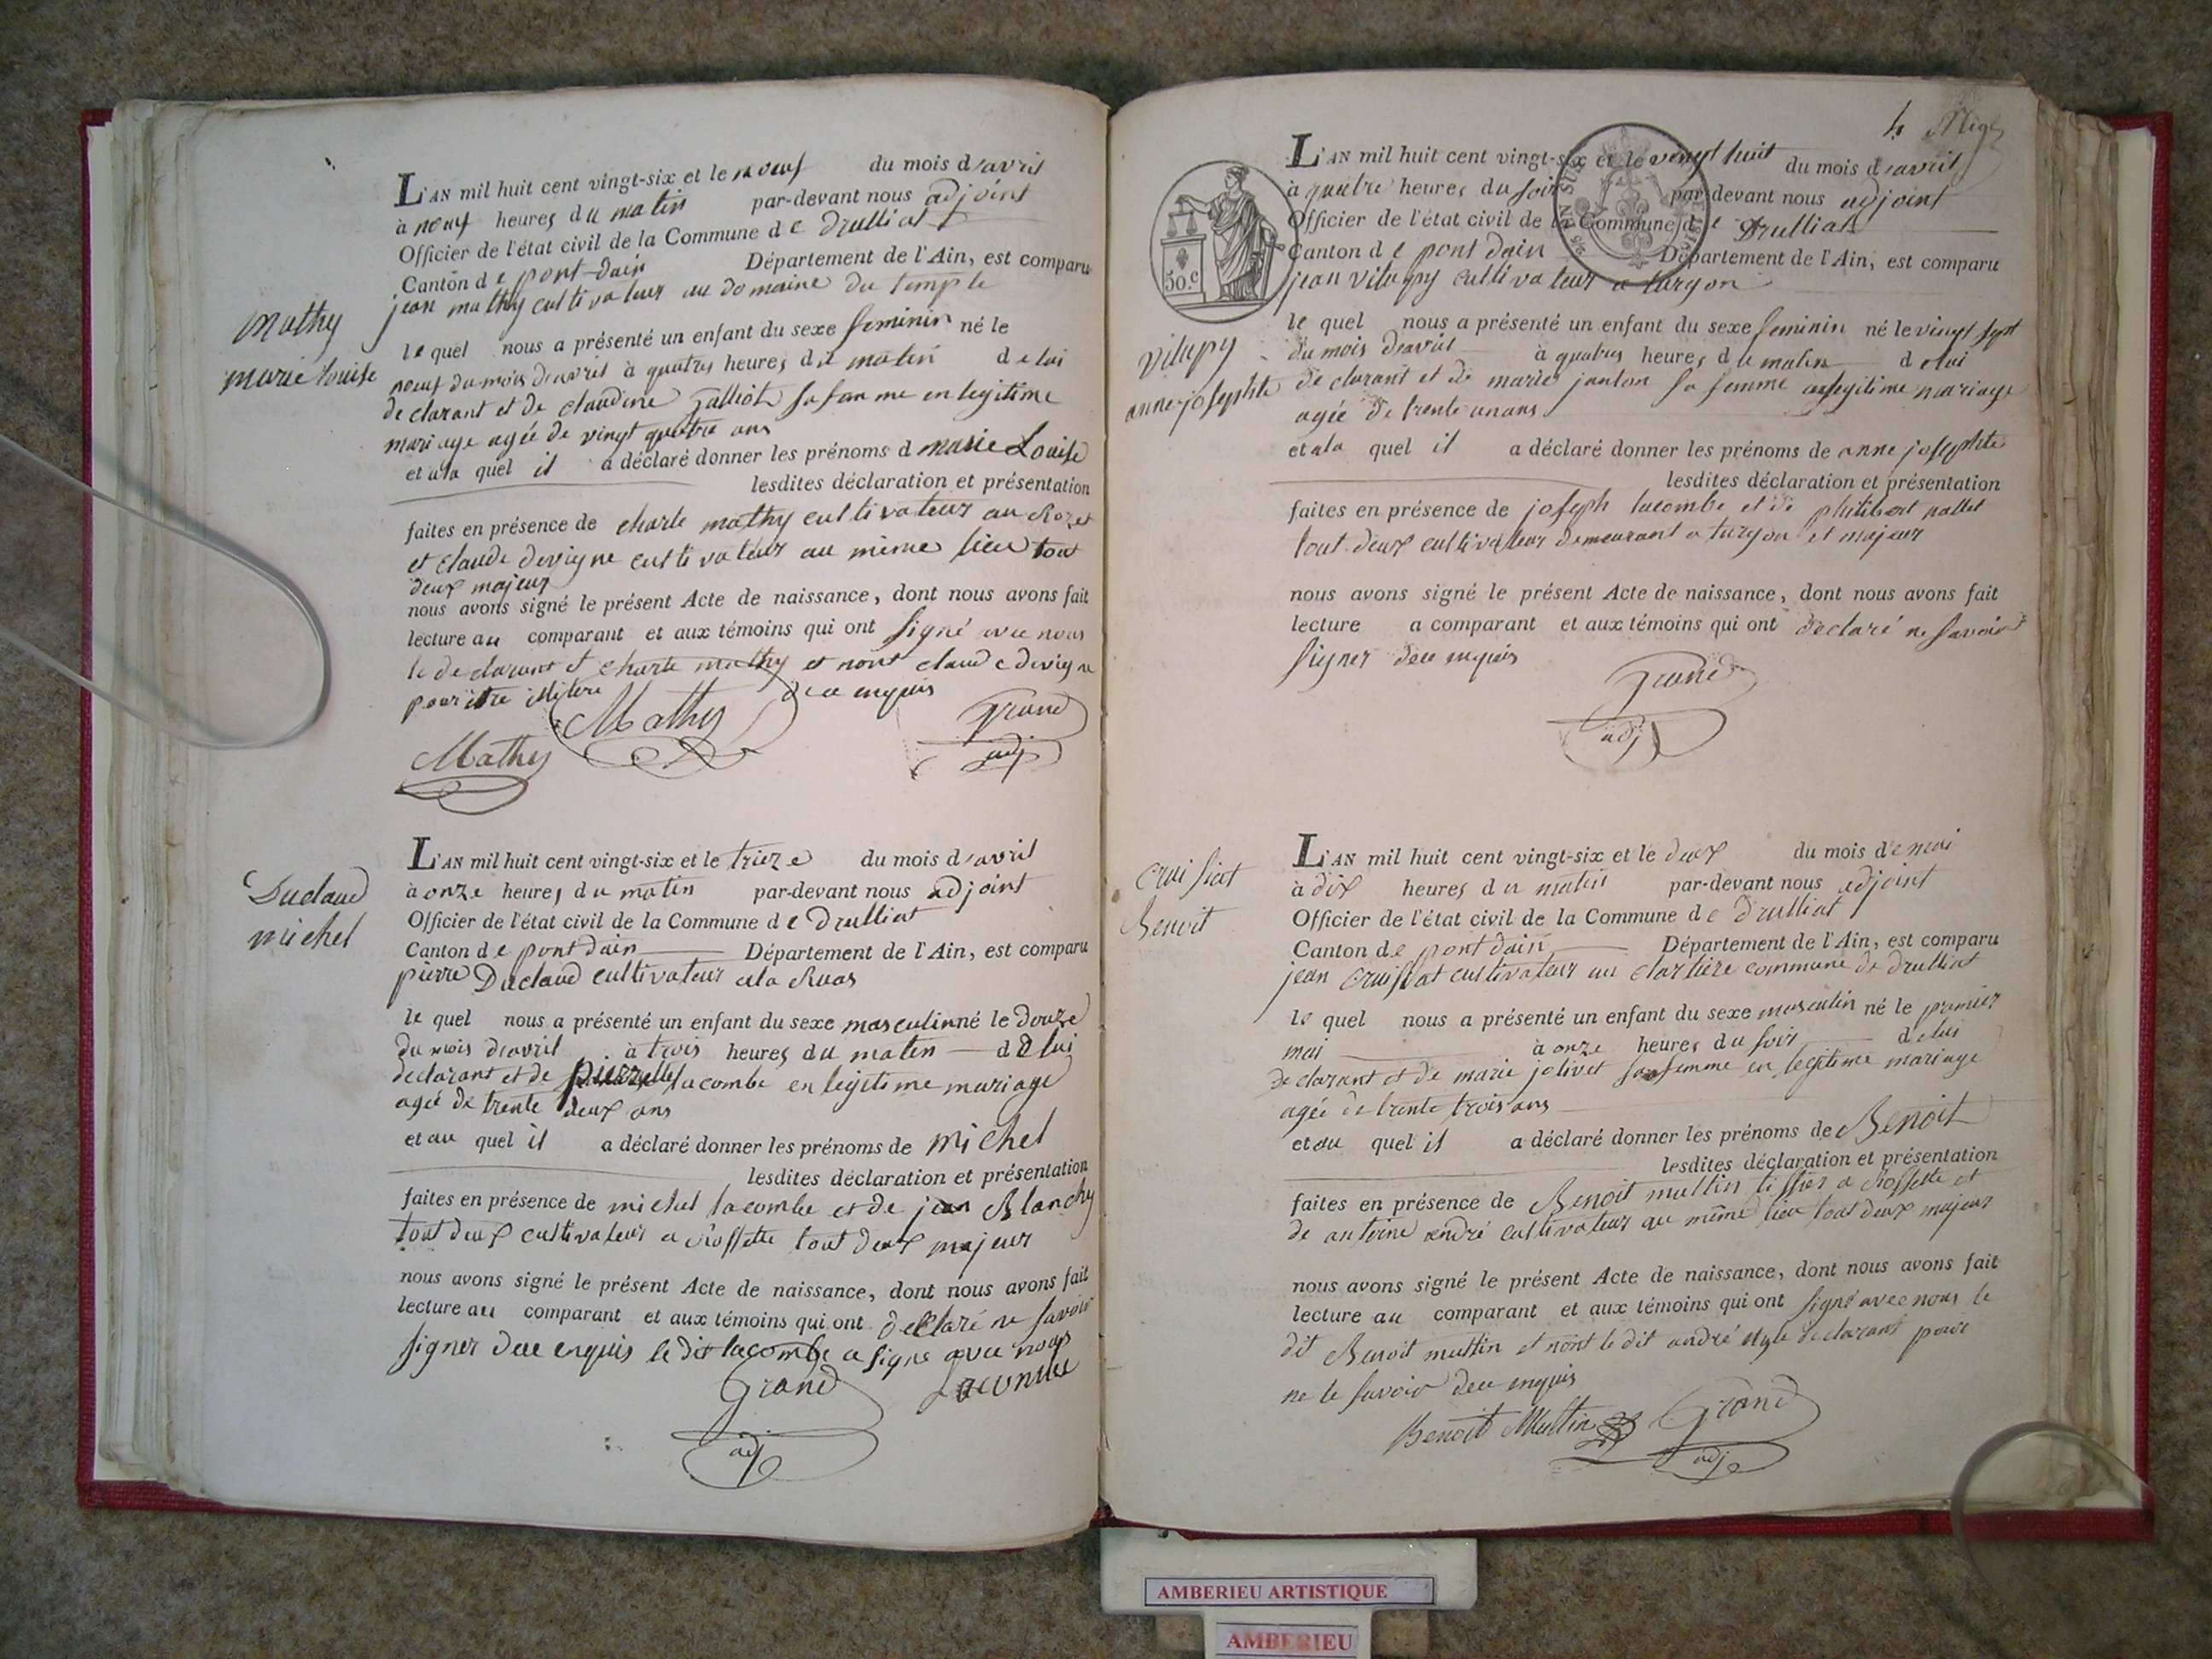 L'AN mil huit cent vingt-six et le neuf du mois d'avril
à neuf heures du matin par-devant nous adjoint
Officier de l'état civil de la Commune de Drulliat
Canton de pont-dain Département de l'Ain, est comparu
jean mathy cultivateur au domaine du temple
mathy
marie Louise
le quel nous a présenté un enfant du sexe feminin né le
neuf du mois d'avril à quatres heures du matin de lui
declarant et de claudine galliot sa famme en legitime
mariage agée de vingt quatre ans
et a la quel il a déclaré donner les prénoms d marie Louise
lesdites déclaration et présentation
faites en présence de charle mathy cultivateur au Rozet
et claude devigne cultivateur au même lieu tout
deux majeur
nous avons signé le présent Acte de naissance, dont nous avons fait
lecture au comparant et aux témoins qui ont signé avec nous
le declarant et charle mathy et nont claude devigne
pour être illitere de ce enquis
Mathy
Grand
Mathy
adj
Duclaud
michel
L'AN mil huit cent vingt-six et le trieze du mois d'avril
à onze heures du matin par-devant nous adjoint
Officier de l'état civil de la Commune de Drulliat
Canton de pont dain Département de l'Ain, est comparu
pierre Duclaud cultivateur a la Ruas
le quel nous a présenté un enfant du sexe masculin né le douze
du mois d'avril à trois heures du matin de lui
declarant et de pierrette lacombe en legitime mariage
agée de trente deux ans
et au quel il a déclaré donner les prénoms de michel
lesdites déclaration et présentation
faites en présence de michel lacombe et de jean Blanchy
tout deux cultivateur a Rossette tout deux majeur
nous avons signé le présent Acte de naissance, dont nous avons fait
lecture au comparant et aux témoins qui ont declaré ne savoir
signer dece enquis le dit lacombe a signe avec nous
Grand Lacombe
adj
4
L'AN mil huit cent vingt-six et le vingt huit du mois d'avril
à quatre heures du soir par-devant nous adjoint
Officier de l'état civil de la Commune de Drulliat
Canton de pont dain Département de l'Ain, est comparu
50.c
jean vilagpy cultivateur a turgon
vilapy
anne josephte
le quel nous a présenté un enfant du sexe feminin né le vingt sept
du mois d'avril à quatres heures du matin de lui
declarant et de marie janton sa femme en legitime mariage
agée de trente un ans
et a la quel il a déclaré donner les prénoms de anne josephte
lesdites déclaration et présentation
faites en présence de joseph lacombe et de philibert nallet
tout deux cultivateur demeurant a turgon et majeur
nous avons signé le présent Acte de naissance, dont nous avons fait
lecture a comparant et aux témoins qui ont declaré ne savoir
signer dece enquis
Grand
adj
cruisiat
Benoit
L'AN mil huit cent vingt-six et le deux du mois de mai
à dix heures du matin par-devant nous adjoint
Officier de l'état civil de la Commune de Drulliat
Canton de pont dain Département de l'Ain, est comparu
jean Cruisiat cultivateur au clartiere commune de drulliat
le quel nous a présenté un enfant du sexe masculin né le premier
mai à onze heures du soir de lui
declarant et de marie jolivet sa femme en legitime mariage
agée de trente trois ans
et au quel il a déclaré donner les prénoms de Benoit
lesdites déclaration et présentation
faites en présence de Benoit multin tissier a Rossette et
de antoine andré cultivateur au même lieu tout deux majeur
nous avons signé le présent Acte de naissance, dont nous avons fait
lecture au comparant et aux témoins qui ont signé avec nous le
dit Benoit multin et nont le dit andré et le declarant pour
ne le savoir dece enquis
Benoit Multin Grand
adj
AMBERIEU ARTISTIQUE
AMBERIEU